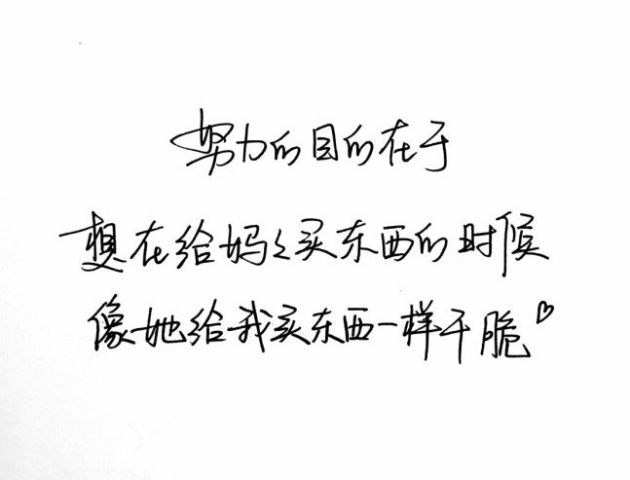 努力的目的在于
想在给妈々买东西的时候
像她给我买东西一样干脆♡